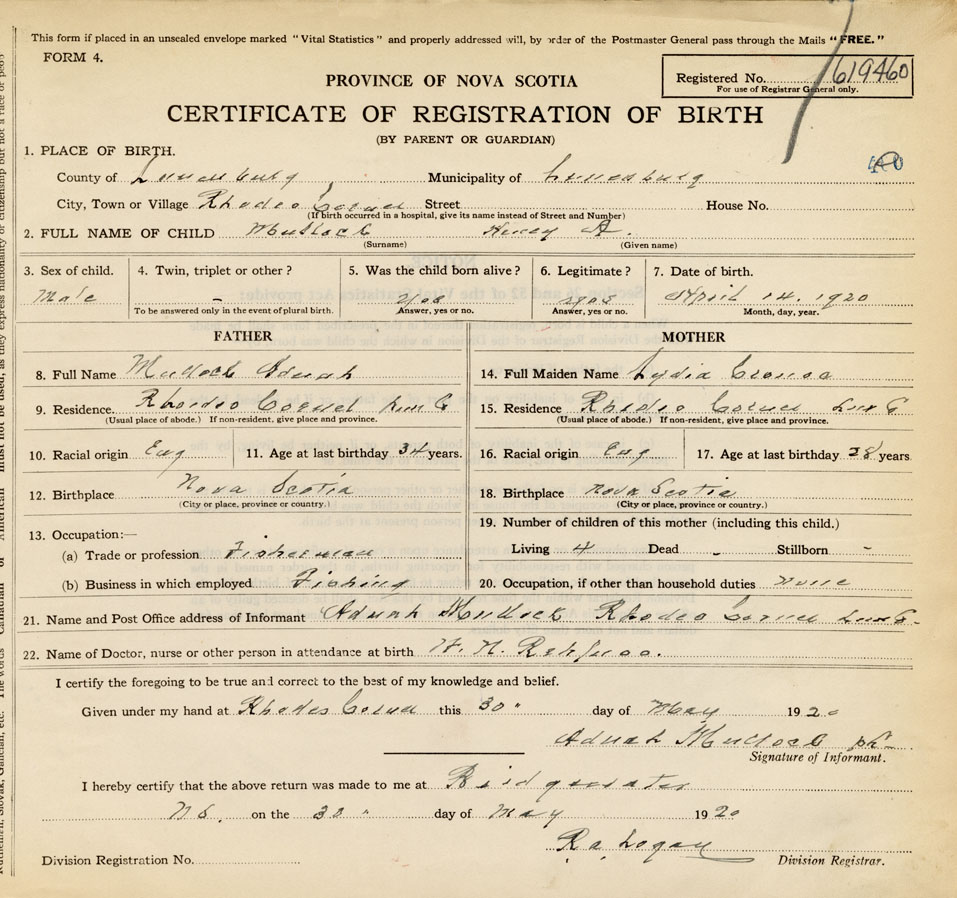 This form if placed in an unsealed envelope marked "Vital Statistics" and properly addressed will, by order of the Postmaster General pass through the Mails "FREE."
FORM 4.
PROVINCE OF NOVA SCOTIA
Registered No. 619460
For use of Registrar General only.
CERTIFICATE OF REGISTRATION OF BIRTH
(BY PARENT OR GUARDIAN)
1. PLACE OF BIRTH.
County of Lunenburg Municipality of Lunenburg
City, Town or Village Rhodes Corner Street House No.
(If birth occurred in a hospital, give its name instead of Street and Number)
2. FULL NAME OF CHILD Mullock Henry A.
(Surname) (Given name)
3. Sex of child. 4. Twin, triplet or other? 5. Was the child born alive? 6. Legitimate? 7. Date of birth.
Male - Yes Yes April 14. 1920
To be answered only in the event of plural birth. Answer, yes or no. Answer, yes or no. Month, day, year.
FATHER MOTHER
8. Full Name Mullock Adnah 14. Full Maiden Name Lydia
9. Residence. Rhodes Corner Lun C 15. Residence Rhodes Corner Lun C
(Usual place of abode.) If non-resident, give place and province. (Usual place of abode.) If non-resident, give place and province.
10. Racial origin Eng 11. Age at last birthday 34 years. 16. Racial origin Eng 17. Age at last birthday 28 years
12. Birthplace Nova Scotia 18. Birthplace Nova Scotia
(City or place, province or country.) (City or place, province or country.)
13. Occupation:— 19. Number of children of this mother (including this child.)
(a) Trade or profession Fisherman Living 4 Dead - Stillborn -
(b) Business in which employed Fishing 20. Occupation, if other than household duties none
21. Name and Post Office address of Informant Adnah Mullock Rhodes Corner Lun C.
22. Name of Doctor, nurse or other person in attendance at birth W. N. Rehfuss.
I certify the foregoing to be true and correct to the best of my knowledge and belief.
Given under my hand at Rhodes Corner this 30" day of May 1920
Adnah Mullock
Signature of Informant.
I hereby certify that the above return was made to me at Bridgewater
N S. on the 30" day of May 1920
R. A. Logan
Division Registration No. Division Registrar.